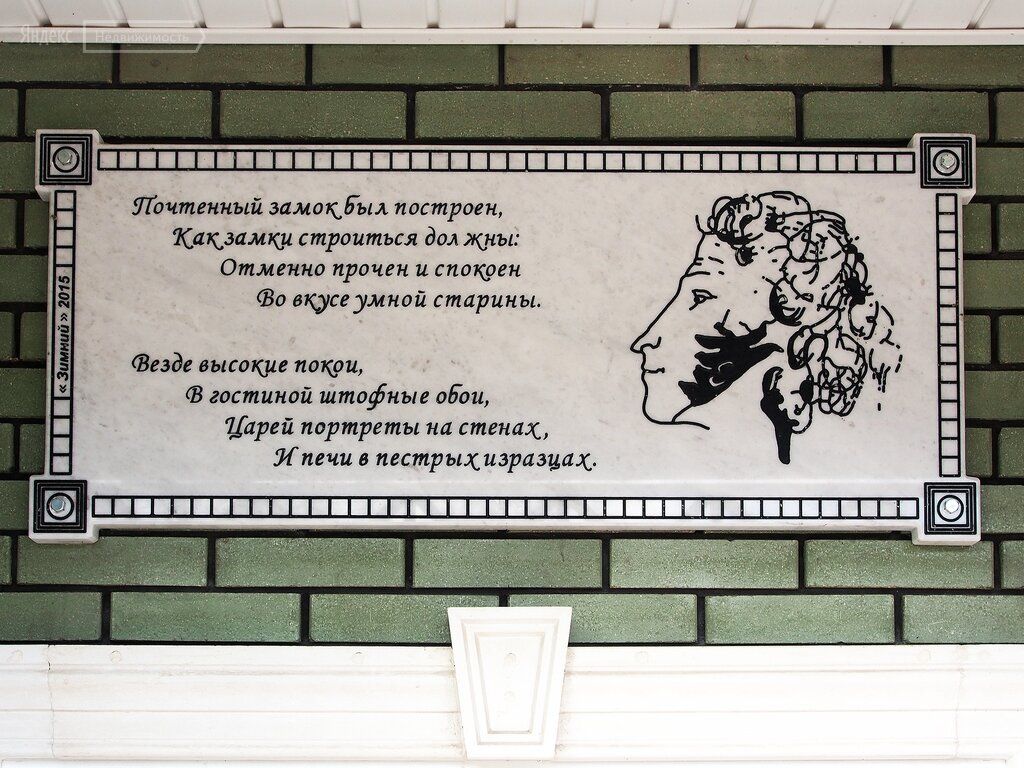 Яндекс Недвижимость
Почтенный замок был построен,
Как замки строиться должны:
Отменно прочен и спокоен
Во вкусе умной старины.
Везде высокие покои,
В гостиной штофные обои,
Царей портреты на стенах,
И печи в пестрых изразцах.
«Зимний» 2015